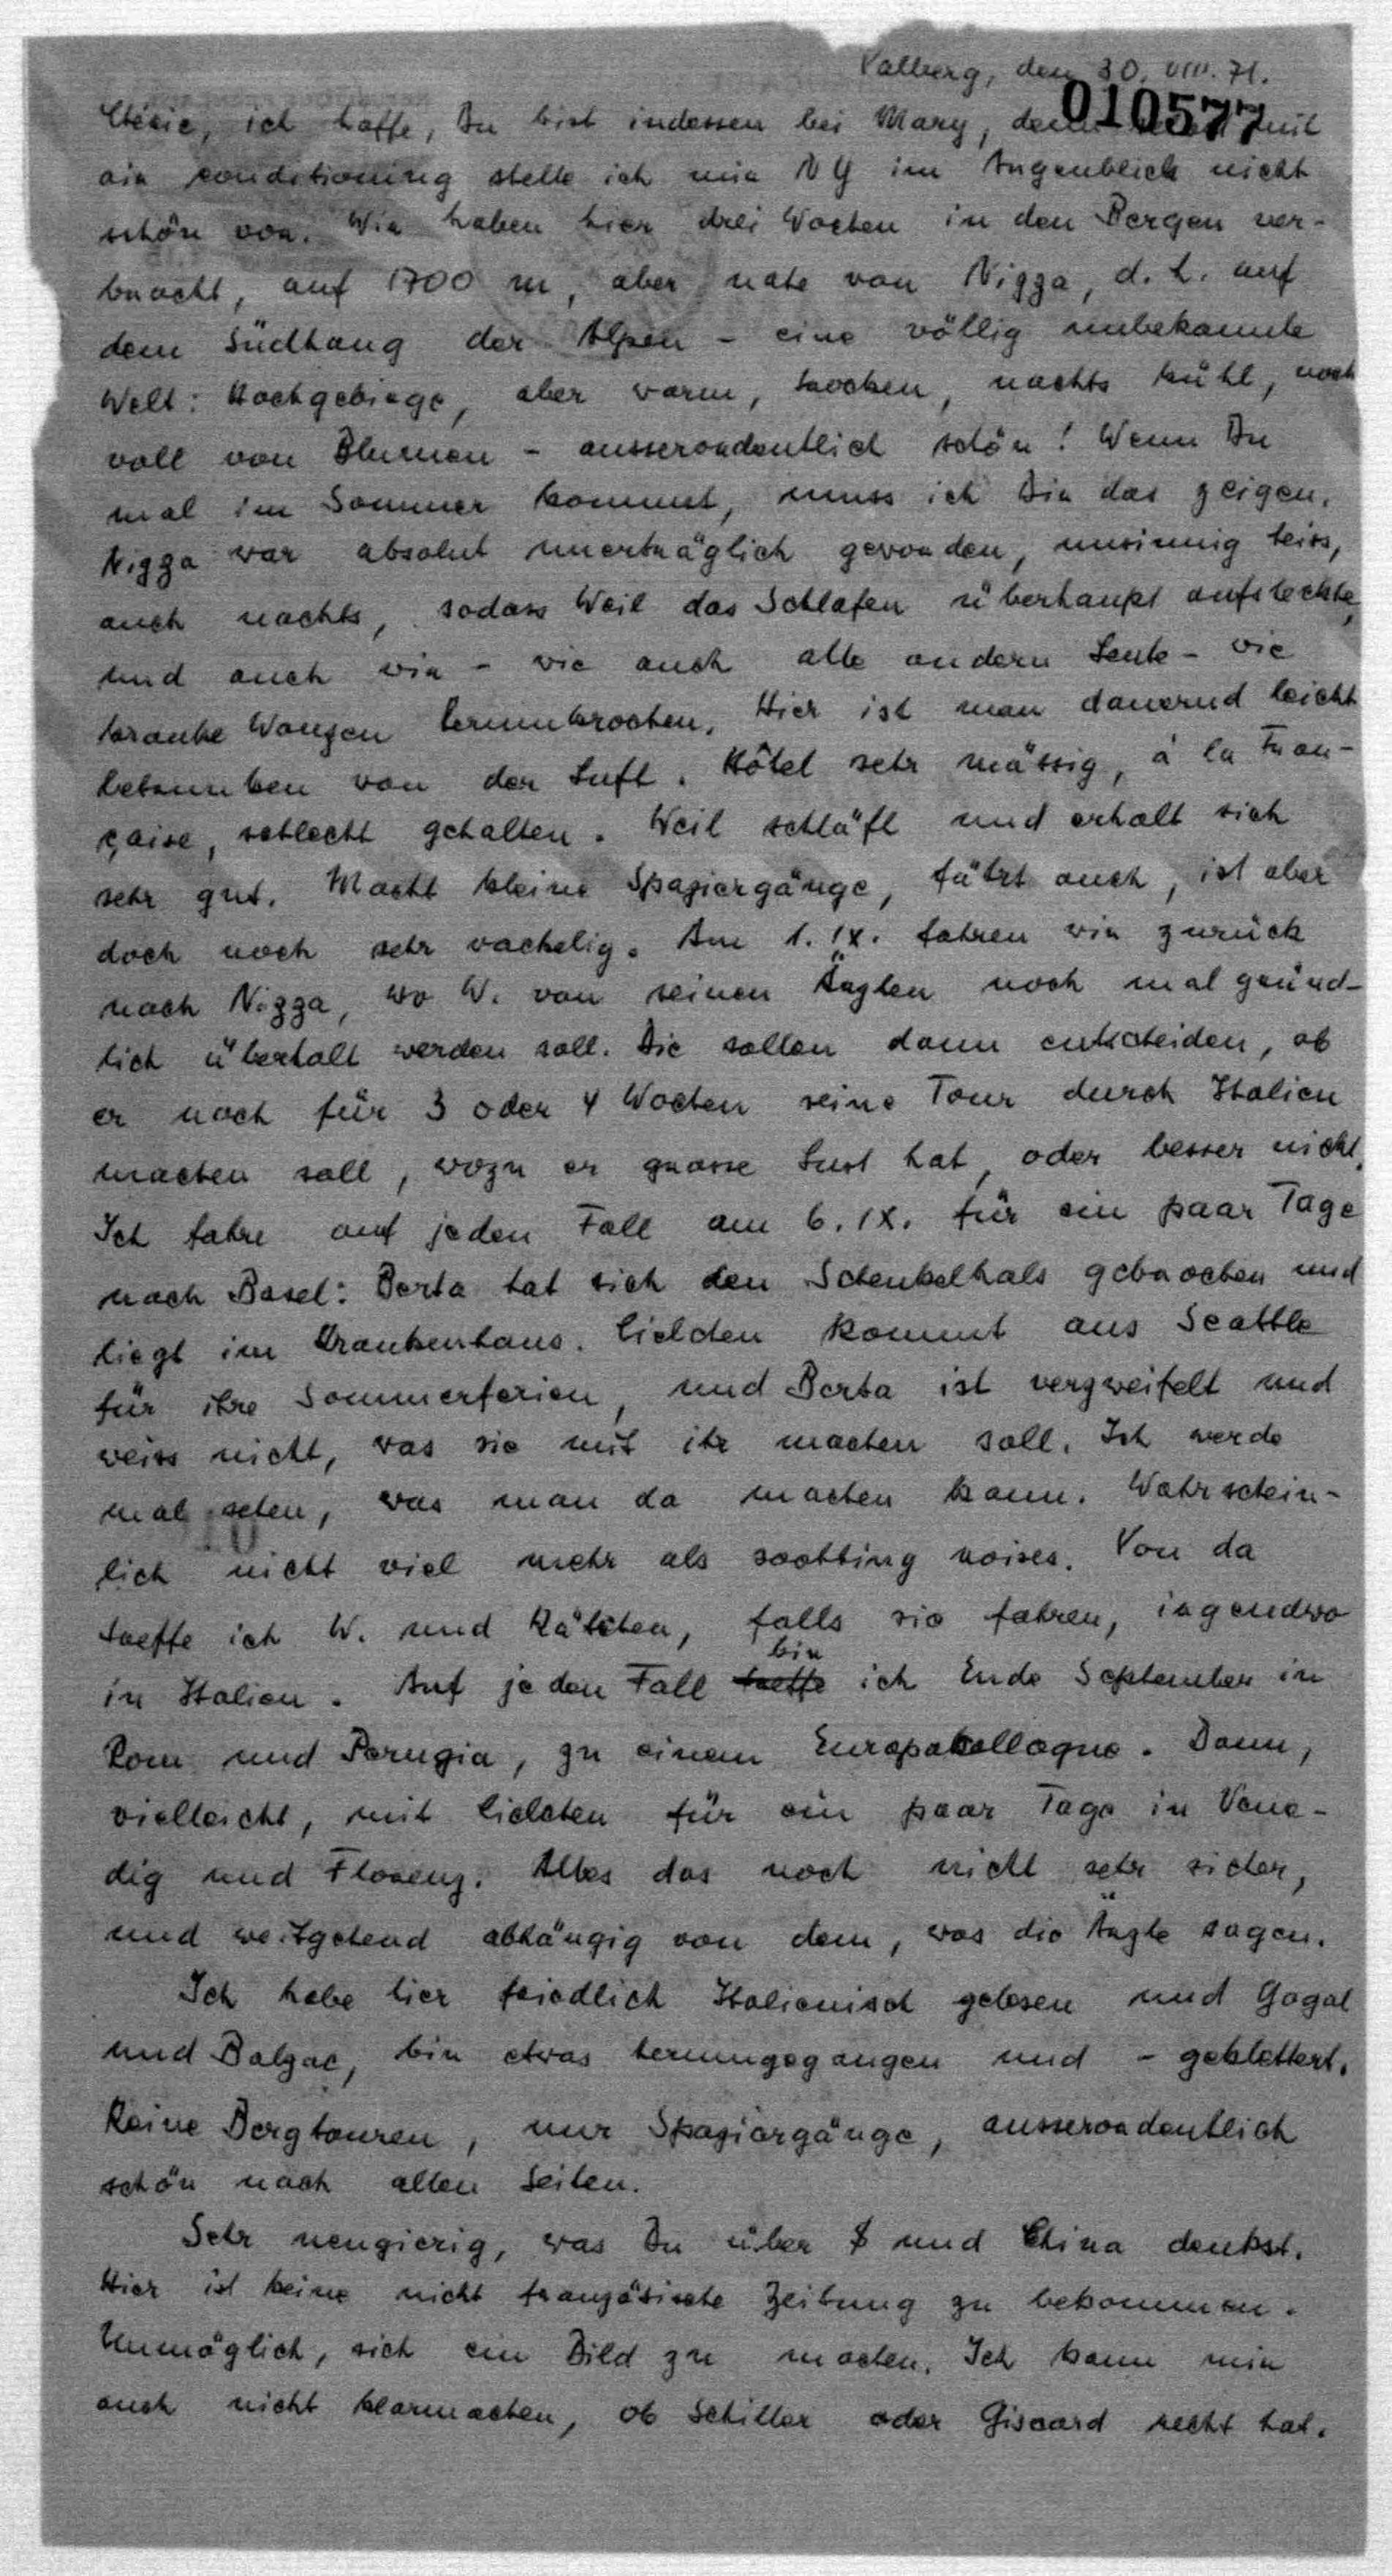 Valberg, den 30. VIII. 71.
010577
Chérie, ich hoffe, Du bist indessen bei Mary, denn mit
air conditioning stelle ich mir NY im Augenblick nicht
schön vor. Wir haben hier drei Wochen in den Bergen ver-
bracht, auf 1700 m, aber nahe von Nizza, d.h. auf
dem Südhang der Alpen - eine völlig unbekannte
Welt: Hochgebirge, aber warm, trocken, nachts kühl, noch
voll von Blumen - ausserordentlich schön! Wenn Du
mal im Sommer kommst, muss ich Dir das zeigen.
Nizza war absolut unerträglich geworden, unsinnig heiss,
auch nachts, sodass Weil das Schlafen überhaupt aufsteckte,
und auch wir - wie auch alle andern Leute - wie
kranke Wanzen herumkrochen. Hier ist man dauernd leicht
betrunken von der Luft. Hôtel sehr mässig, à la Fran-
çaise, schlecht gehalten. Weil schläft und erholt sich
sehr gut. Macht kleine Spaziergänge, fährt auch, ist aber
doch noch sehr wackelig. Am 1. IX. fahren wir zurück
nach Nizza, wo W. von seinen Ärzten noch mal gründ-
lich überholt werden soll. Die sollen dann entscheiden, ob
er noch für 3 oder 4 Wochen seine Tour durch Italien
machen soll, wozu er grosse Lust hat, oder besser nicht.
Ich fahre auf jeden Fall am 6. IX. für ein paar Tage
nach Basel: Berta hat sich den Schenkelhals gebrochen und
liegt im Krankenhaus. Lielchen kommt aus Seattle
für ihre Sommerferien, und Berta ist verzweifelt und
weiss nicht, was sie mit ihr machen soll. Ich werde
mal sehen, was man da machen kann. Wahrschein-
lich nicht viel mehr als soothing noises. Von da
treffe ich W. und Kätchen, falls sie fahren, irgendwo
bin
in Italien. Auf jeden Fall treffe ich Ende September in
Rom und Perugia, zu einem Europakolloque. Dann,
vielleicht, mit Lielchen für ein paar Tage in Vene-
dig und Florenz. Alles das noch nicht sehr sicher,
und weitgehend abhängig von dem, was die Ärzte sagen.
Ich habe hier friedlich Italienisch gelesen und Gogol
und Balzac, bin etwas herumgegangen und - geklettert.
Keine Bergtouren, nur Spaziergänge, ausserordentlich
schön nach allen Seiten.
Sehr neugierig, was Du über $ und China denkst.
Hier ist keine nicht französische Zeitung zu bekommen.
Unmöglich, sich ein Bild zu machen. Ich kann mir
auch nicht klarmachen, ob Schiller oder Giscard recht hat.